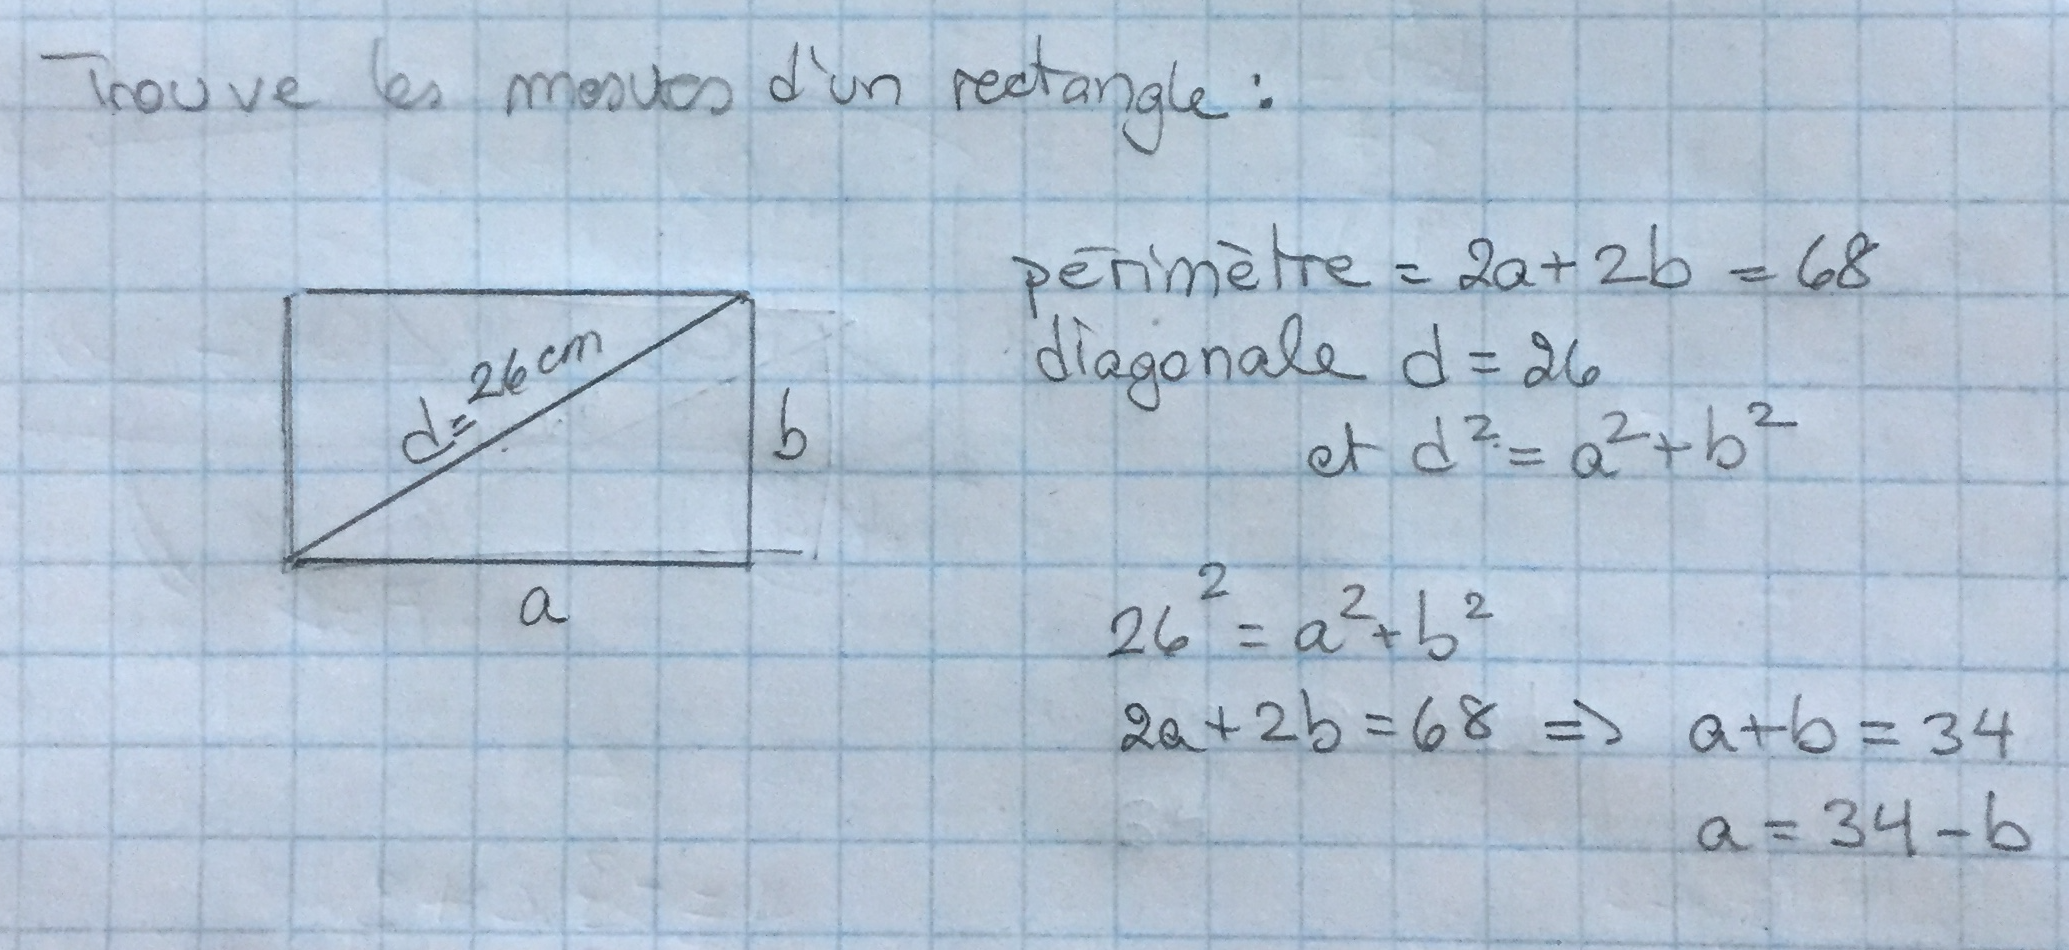 Trouve les mesures d'un rectangle :
périmètre = 2a + 2b = 68
diagonale d = 26
et d² = a² + b²
d = 26 cm
b
a
26² = a² + b²
2a + 2b = 68 => a + b = 34
a = 34 - b